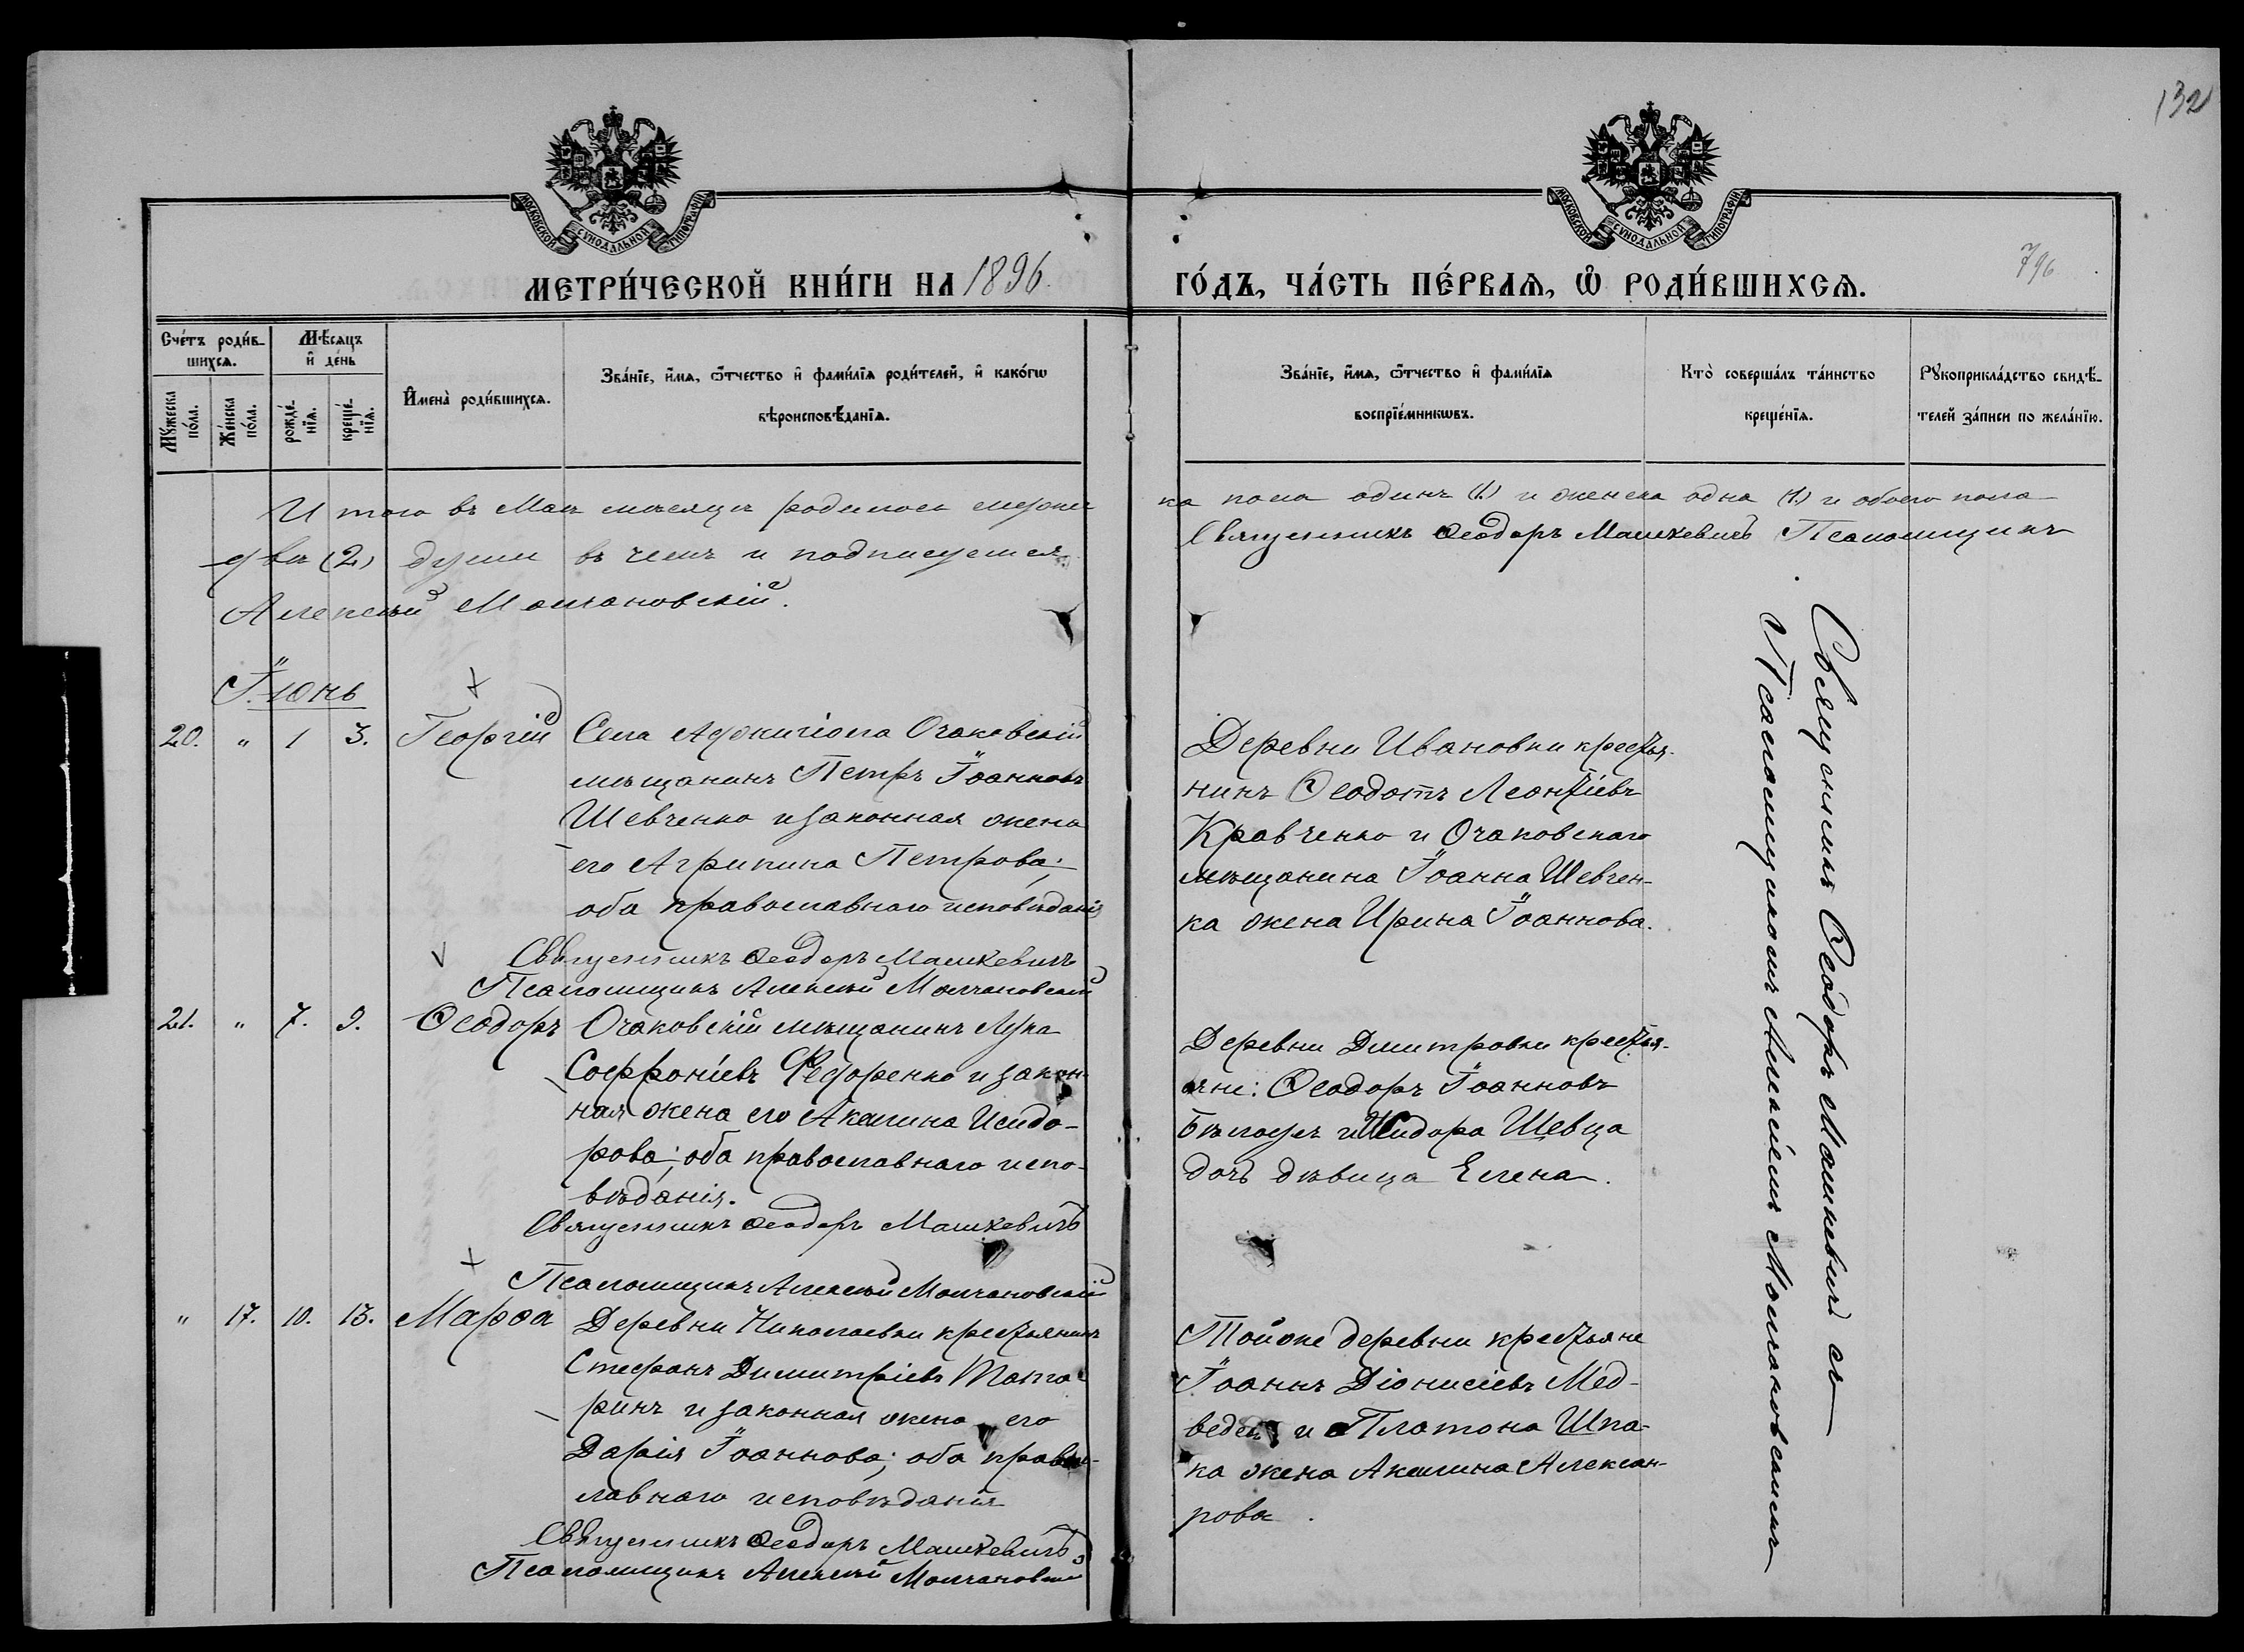 132
МОСКОВСКОЙ СѴНОДАЛЬНОЙ ТИПОГРАФІИ
МОСКОВСКОЙ СѴНОДАЛЬНОЙ ТИПОГРАФІИ
796
МЕТРИ́ЧЕСКОЙ КНИ́ГИ НА 1896 ГО́ДЪ, ЧА́СТЬ ПЕ́РВАѦ, Ѡ҆ РОДИ́ВШИХСѦ.
Сче́тъ роди́в-
шихсѧ.
Мѣ́сяцъ
и҆ де́нь
Мꙋ́жеска по́ла.
Же́нска по́ла.
рожде́-
нїѧ.
креще́-
нїѧ.
И҆мена̀ роди́вшихсѧ.
Зва́нїе, и҆́мѧ, ѻ҆́тчество и҆ фами́лїѧ роди́телей, и҆ како́гѡ
вѣроисповѣ́данїѧ.
Зва́нїе, и҆́мѧ, ѻ҆́тчество и҆ фами́лїѧ
воспрїе́мникѡвъ.
Кто̀ соверша́лъ та́инство
креще́нїѧ.
Рꙋкоприкла́дство свидѣ́-
телей за́писи по жела́нїю.
Итого въ Маѣ мѣсяцѣ родилось мужес
ка пола одинъ (1.) и женска одна (1.) и обоего пола
двѣ (2) души въ чемъ и подписуемся
Священникъ Ѳеодоръ Машкевичъ Псаломщикъ
Алексѣй Молчановскій.
Іюнь
20. " 1 3. Георгій
Села Аджигіола Очаковскій
мѣщанинъ Петръ Іоанновъ
Шевченко и законная жена
его Агрипина Петрова;
оба православнаго исповѣданія
Деревни Ивановки крестья-
нинъ Ѳеодотъ Леонтіевъ
Кравченко и Очаковскаго
мѣщанина Іоанна Шевчен-
ка жена Ирина Іоаннова.
Священникъ Ѳеодоръ Машкевичъ
Псаломщикъ Алексѣй Молчановскій
21. " 7. 9. Ѳеодоръ
Очаковскій мѣщанинъ Лука
Софроніевъ Федоренко и закон-
ная жена его Акилина Исидо-
рова; оба православнаго испо-
вѣданія.
Деревни Димитровки крестья-
яне: Ѳеодоръ Іоанновъ
Бѣлоусъ и Исидора Шевца
дочь дѣвица Елена.
Священникъ Ѳеодоръ Машкевичъ
Псаломщикъ Алексѣй Молчановскій
" 17. 10. 13. Марѳа
Деревни Николаевки крестьянинъ
Стефанъ Димитріевъ
ринъ и законная жена его
Дарія Іоаннова; оба правос-
лавнаго исповѣданія
Тойже деревни крестьяне
Іоаннъ Діонисіевъ Мед-
ведев и Платона Шпа-
ка жена Акилина Алексан-
рова.
Священникъ Ѳеодоръ Машкевичъ
Псаломщикъ Алексѣй Молчановскій
Священникъ Ѳеодоръ Машкевичъ съ
Псаломщикомъ Алексѣемъ Молчановскимъ